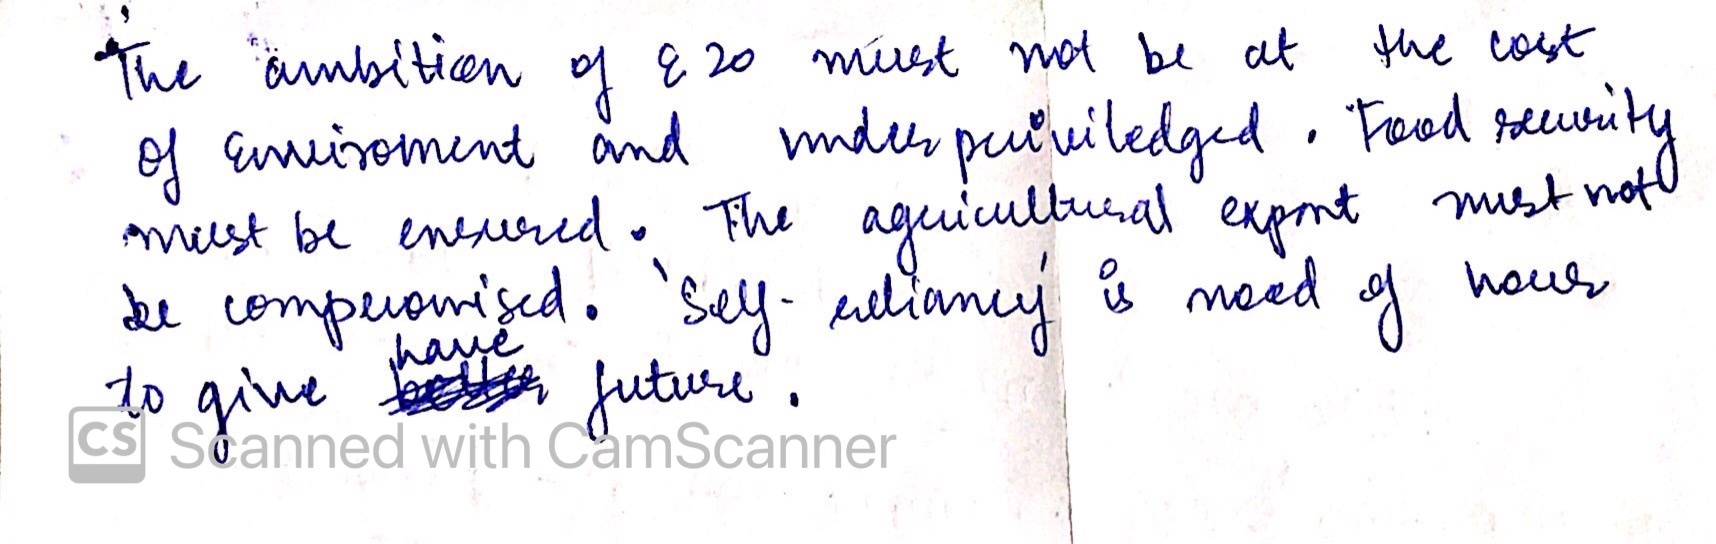 The ambition of E20 must not be at the cost
of Enviroment and underpriviledged. Food security
must be ensured. The agricultural export must not
be compromised. 'Self-reliancy' is need of hour
have
to give better future.
CS Scanned with CamScanner